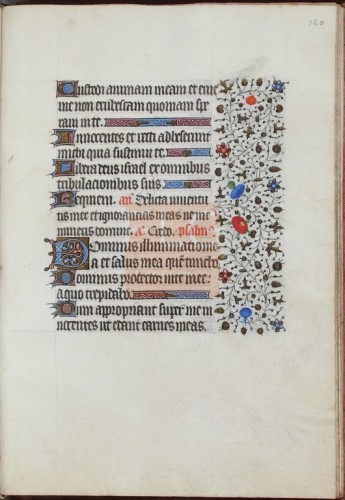 120
Custodi animam meam et erue
me non erubescam quoniam spe
raui in te.
Innocentes et recti adheserunt
michi quia sustinui te.
Libera deus israel ex omnibus
tribulacionibus suis.
Requiem. an. Delicta iuuentu
tis mee et ignorancias meas ne me
mineris domine. a. Credo. psalm
Dominus illuminatio me
a et salus mea que timebo
Dominus protector uite mee:
a quo trepidabo.
Dum appropriant super me in
nocentes ut edant carnes meas.